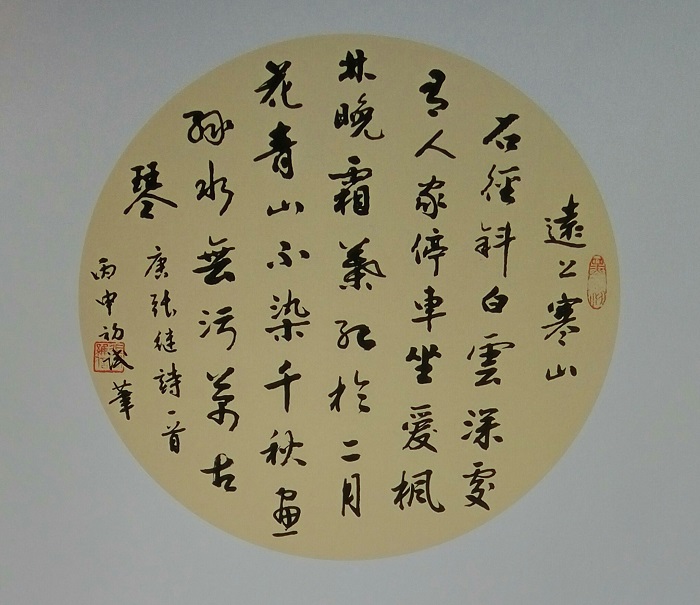 遠上寒山
石徑斜白雲深處
有人家停車坐愛楓
林晚霜葉紅於二月
花青山不染千秋画
綠水無污萬古
琴
唐張继詩一首
丙申初試筆